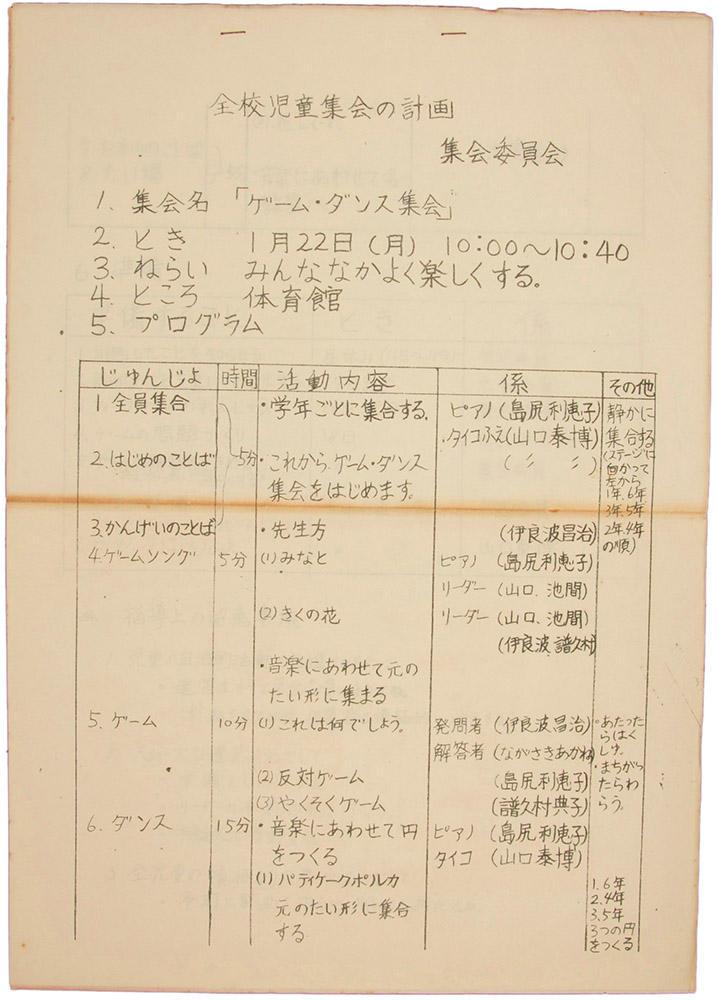 全校児童集会の計画
集会委員会
1. 集会名 「ゲーム・ダンス集会」
2. とき 1月22日(月) 10:00〜10:40
3. ねらい みんななかよく楽しくする。
4. ところ 体育館
5. プログラム
じゅんじよ 時間 活動内容 係 その他
1 全員集合 ・学年ごとに集合する。 ピアノ(島尻利恵子) 静かに
・タイコふえ(山口泰博) 集合する
2. はじめのことば 5分 ・これからゲーム・ダンス (〃 〃) (ステージに
集会をはじめます。 向かって
左から
1年.6年
3年.5年
3. かんげいのことば ・先生方 (伊良波昌治) 2年.4年
の順)
4. ゲームソング 5分 (1) みなと ピアノ (島尻利恵子)
リーダー (山口、池間)
(2) きくの花 リーダー (山口、池間)
(伊良波 譜久村)
・音楽にあわせて元の
たい形に集まる
5. ゲーム 10分 (1) これは何でしょう。 発問者 (伊良波昌治) ・あたった
らはく
解答者 (ながさきあかね) しゅ。
(2) 反対ゲーム (島尻利恵子) ・まちがっ
たらわ
(3) やくそくゲーム (譜久村典子) らう。
6. ダンス 15分 ・音楽にあわせて円 ピアノ (島尻利恵子)
をつくる タイコ (山口泰博)
(1) パティケークポルカ 1.6年
元のたい形に集合 2.4年
する 3.5年
3つの円
をつくる